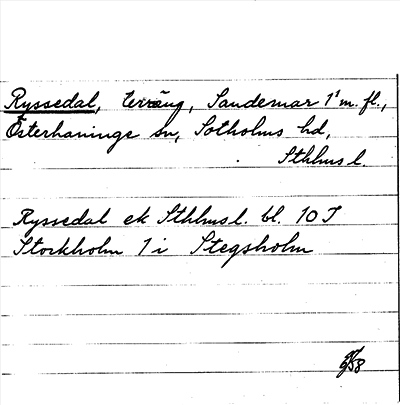 Ryssedal, terräng, Sandemar 1¹ m. fl.,
Österhaninge sn, Sotholms hd,
Sthlms l.
Ryssedal ek Sthlms l. bl. 10 J
Stockholm 1 i Stegsholm